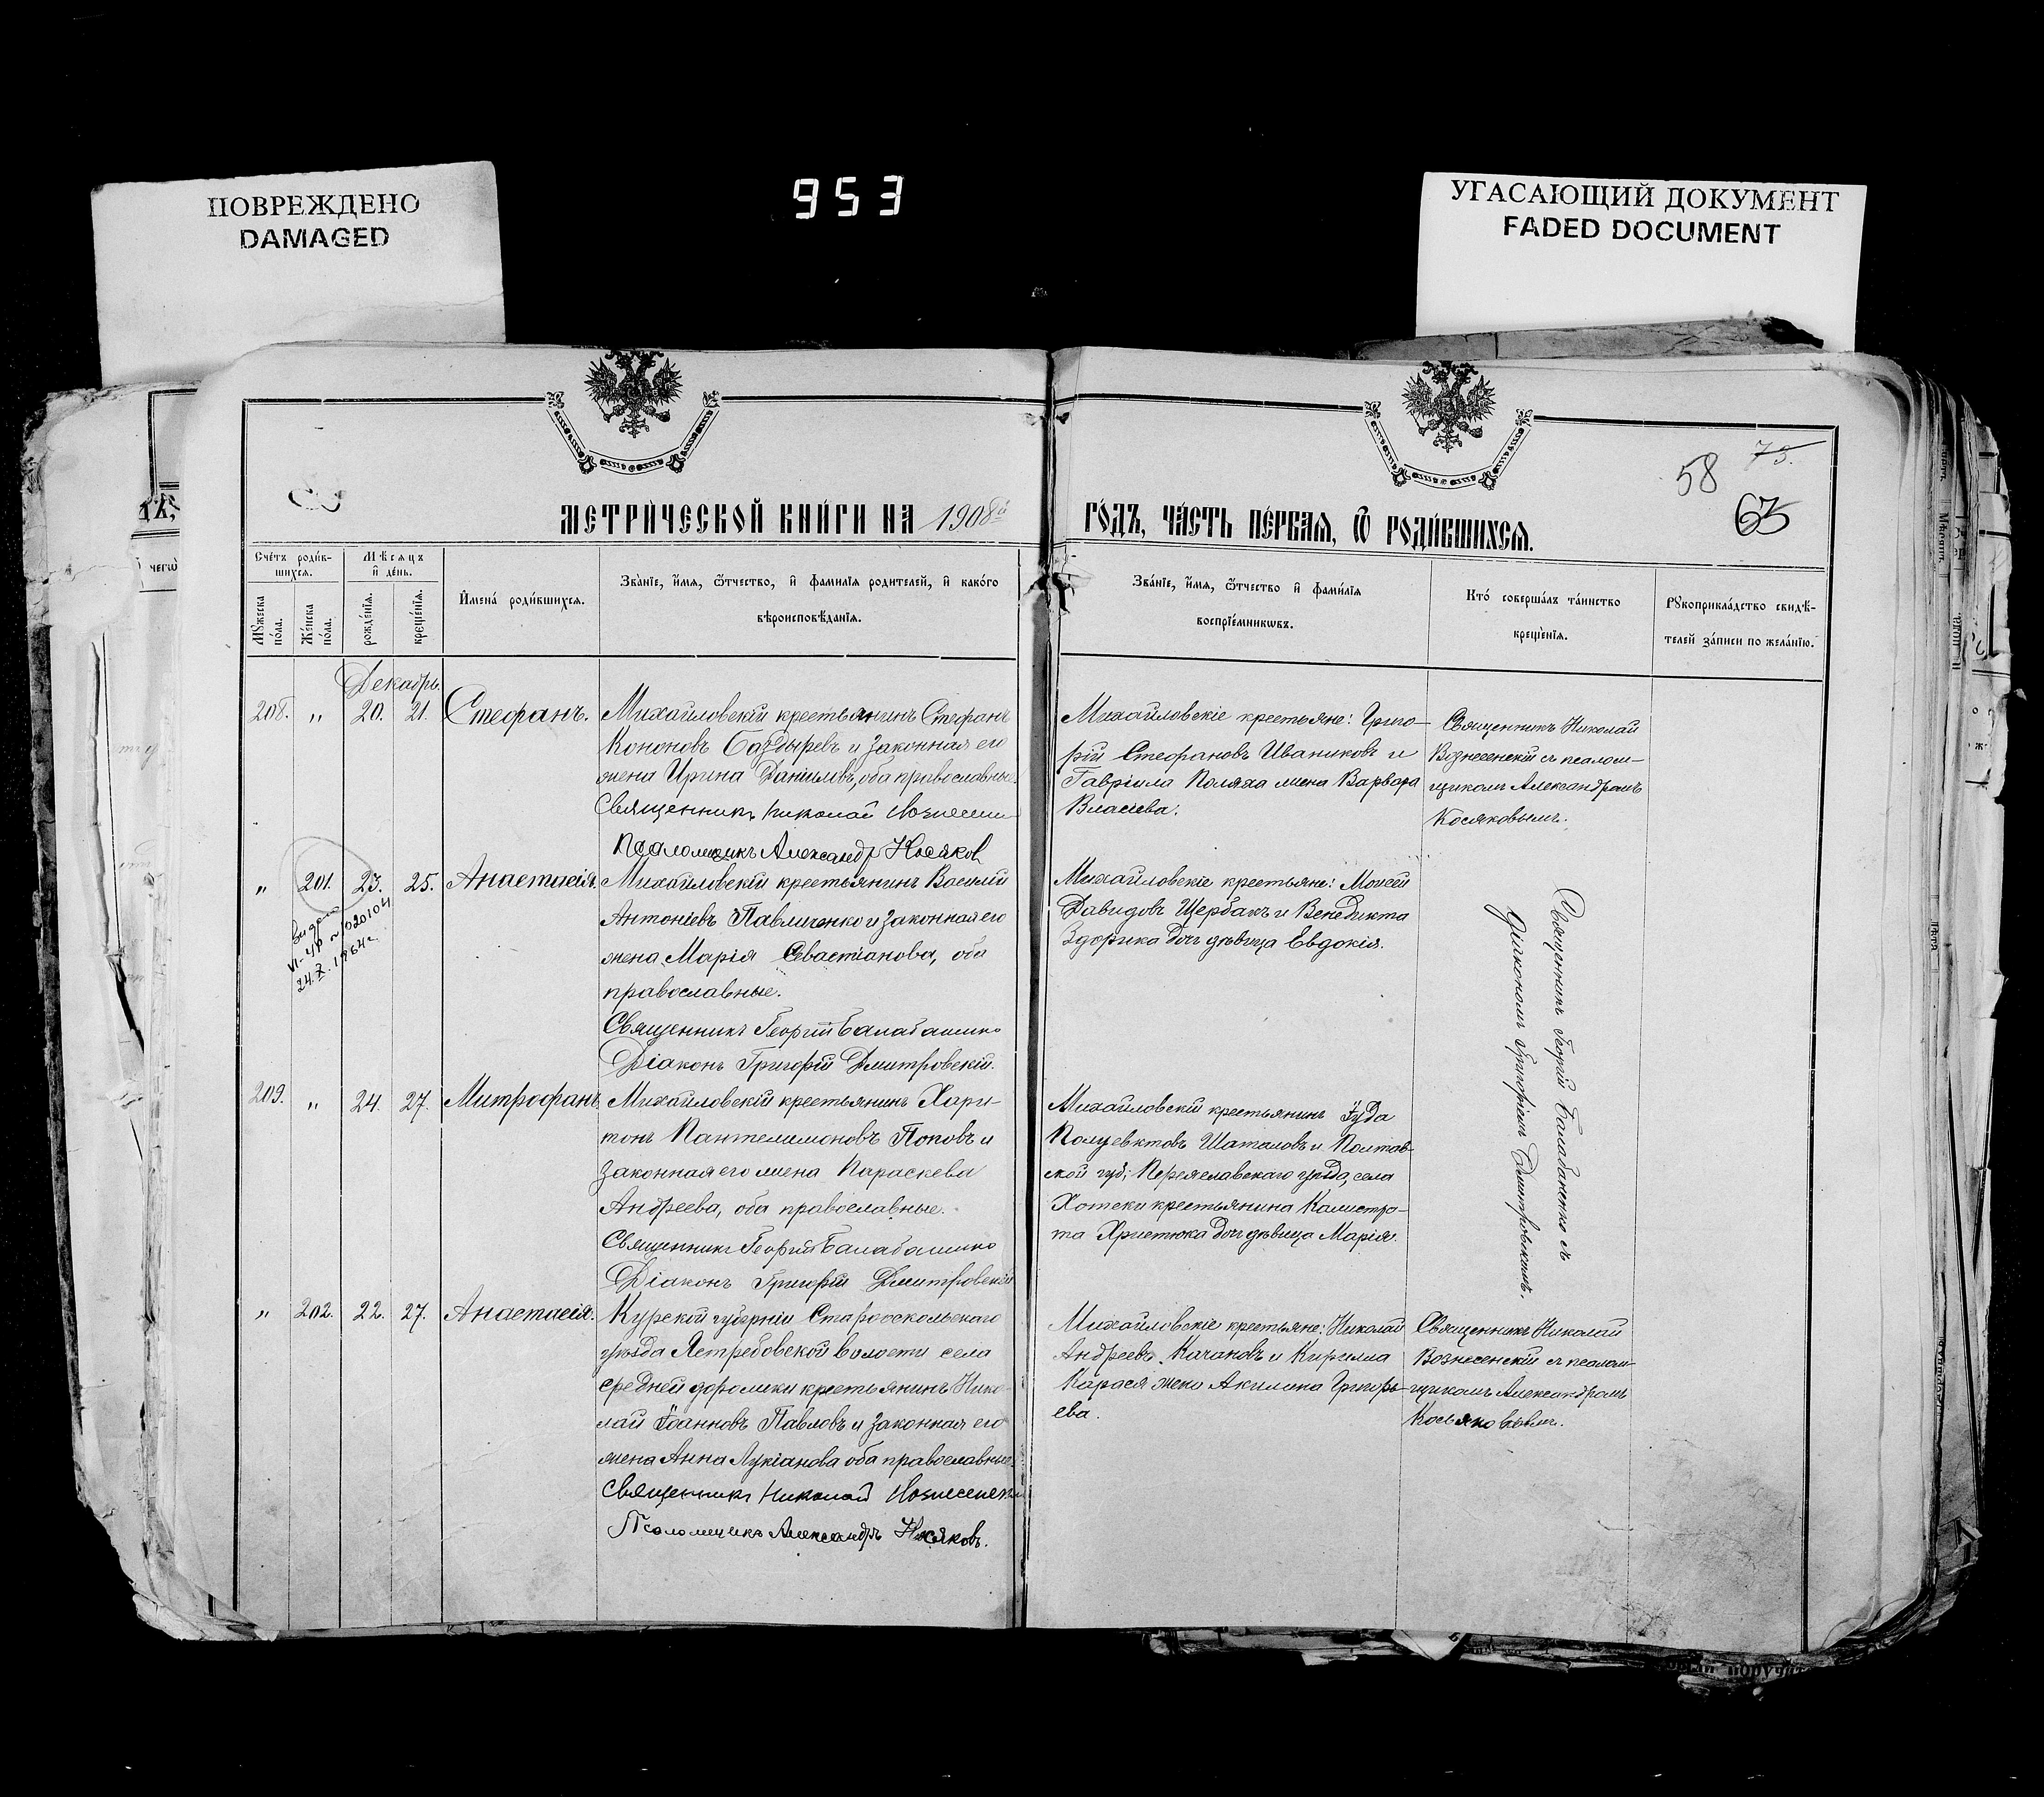 ПОВРЕЖДЕНО
DAMAGED
953
УГАСАЮЩИЙ ДОКУМЕНТ
FADED DOCUMENT
58
75.
63
МЕТРИЧЕСКОЙ КНИГИ НА 1908й ГОДЪ, ЧАСТЬ ПЕРВАЯ, Ѿ РОДИВШИХСЯ.
Счетъ родив-
шихся.
Мѣсяцъ
и день.
Мужеска пола.
Женска пола.
рожденія.
крещенія.
Имена родившихся.
Званіе, имя, ѿтчество, и фамилія родителей, и какого
вѣроисповѣданія.
Званіе, имя, ѿтчество и фамилія
воспріемниковъ.
Кто совершалъ таинство
крещенія.
Рукоприкладство свидѣ-
телей записи по желанію.
Декабрь.
208. " 20. 21. Стефанъ.
Михайловскій крестьянинъ Стефанъ
Кононовъ Баздыревъ и законная его
жена Ирина Даніилова, оба православные.
Священникъ Николай Вознесенск
Псаломщикъ Александр Косяков
Михайловскіе крестьяне: Григо-
рій Стефановъ Иваниковъ и
Гавріила Поляха жена Варвара
Власіева.
Священникъ Николай
Вознесенскій съ псалом-
щикомъ Александромъ
Косяковымъ.
" 201. 23. 25. Анастасія.
Видано
VI-ЧР № 020104
24.X.1964г.
Михайловскій крестьянинъ Василій
Антоніевъ Павличенко и законная его
жена Марія Севастіанова, оба
православные.
Священникъ Георгій Балабаненко
Діаконъ Григорій Дмитровскій.
Михайловскіе крестьяне: Моисей
Давидовъ Щербакъ и Венедикта
Здорика дочь дѣвица Евдокія.
Священникъ Георгій Балабаненко съ
діакономъ Григоріемъ Дмитровскимъ.
209. " 24. 27. Митрофанъ
Михайловскій крестьянинъ Хари-
тонъ Пантелимоновъ Поповъ и
законная его жена Параскева
Андреева, оба православные.
Священникъ Георгій Балабаненко
Діаконъ Григорій Дмитровскій
Михайловскій крестьянинъ Іуда
Полуевктовъ Шаталовъ и Полтав-
ской губ; Переяславскаго уѣзда, села
Хотеки крестьянина Калистра-
та Христюка дочь дѣвица Марія.
" 202. 22. 27. Анастасія.
Курской губерніи Старооскольскаго
уѣзда Ястребовской волости села
средней дорожки крестьянинъ Нико-
лай Іоанновъ Павловъ и законная его
жена Анна Лукіанова оба православные.
Священникъ Николай Вознесенскій
Псаломщикъ Александръ Косяковъ.
Михайловскіе крестьяне: Николай
Андреевъ Качановъ и Кирилла
Карася жена Акилина Григорь-
ева.
Священникъ Николай
Вознесенскій съ псалом-
щикомъ Александромъ
Косьяковымъ.